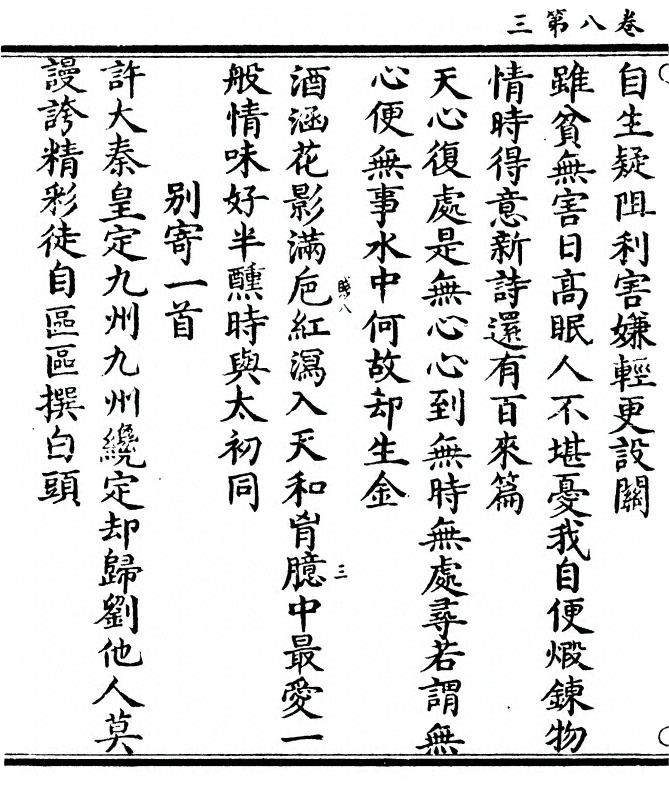 卷八第三
自生疑阻利害嫌輕更設關
雖貧無害日高眠人不堪憂我自便煅鍊物
情時得意新詩還有百來篇
天心復處是無心心到無時無處尋若謂無
心便無事水中何故却生金
八 三
酒涵花影滿巵紅瀉入天和胷臆中最愛一
般情味好半醺時與太初同
别寄一首
許大秦皇定九州九州纔定却歸劉他人莫
謾誇精彩徒自區區撰白頭